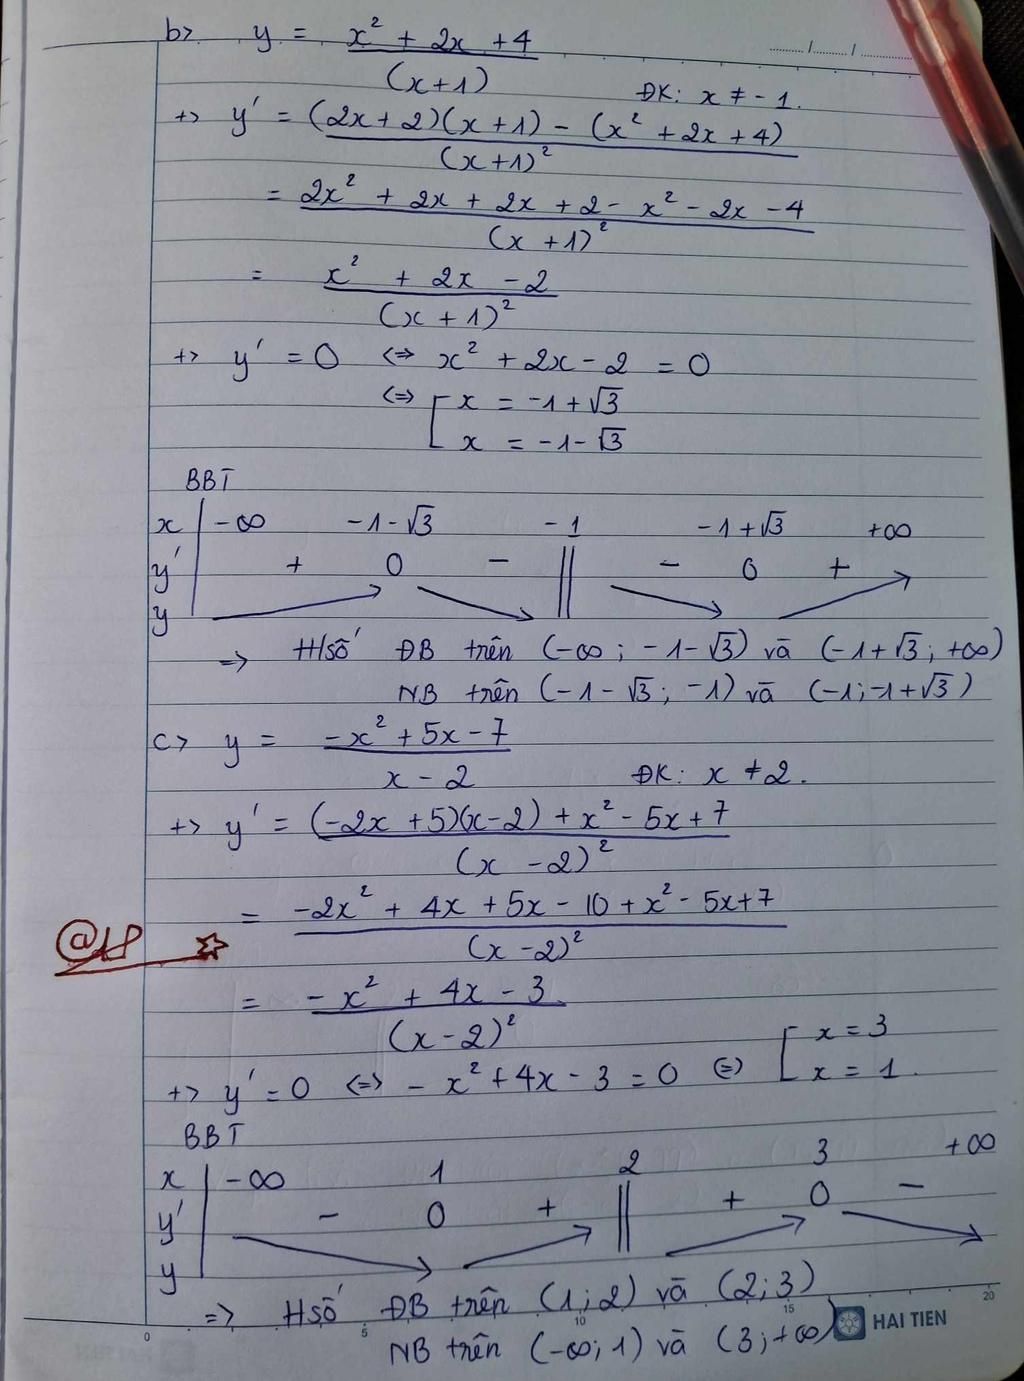 b> y = x² + 2x + 4 / (x+1)
ĐK: x ≠ -1.
+> y' = (2x+2)(x+1) - (x² + 2x + 4) / (x+1)²
= 2x² + 2x + 2x + 2 - x² - 2x - 4 / (x+1)²
= x² + 2x - 2 / (x+1)²
+> y' = 0 <=> x² + 2x - 2 = 0
<=> [ x = -1 + √3
x = -1 - √3
BBT
x | -∞ -1-√3 -1 -1+√3 +∞
y' + 0 - || - 0 +
y
=> H/số ĐB trên (-∞; -1-√3) và (-1+√3; +∞)
NB trên (-1-√3; -1) và (-1; -1+√3)
c> y = -x² + 5x - 7 / x - 2
ĐK: x ≠ 2.
+> y' = (-2x + 5)(x-2) + x² - 5x + 7 / (x-2)²
= -2x² + 4x + 5x - 10 + x² - 5x + 7 / (x-2)²
@18
= -x² + 4x - 3 / (x-2)²
+> y' = 0 <=> -x² + 4x - 3 = 0 <=> [ x = 3
x = 1.
BBT
x | -∞ 1 2 3 +∞
y' - 0 + || + 0 -
y
=> Hsố ĐB trên (1; 2) và (2; 3)
NB trên (-∞; 1) và (3; +∞)
0 5 10 15 20
HAI TIEN